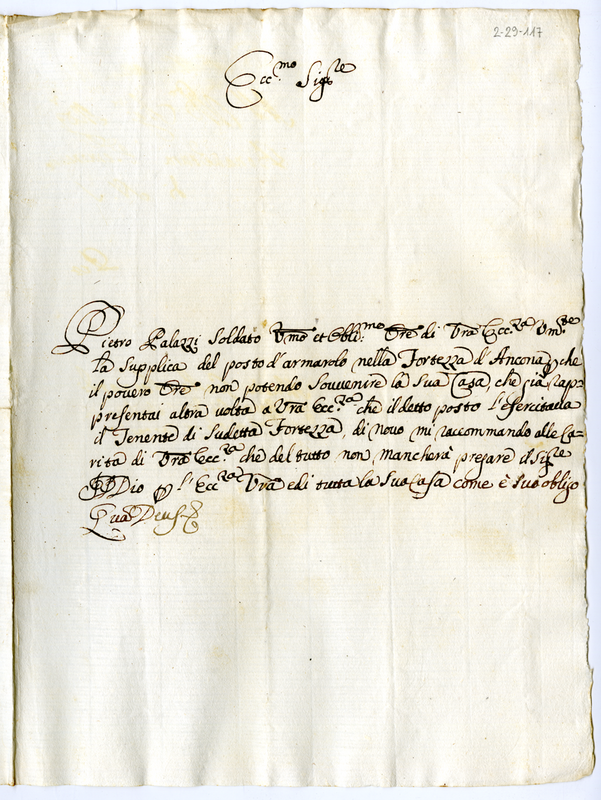 2-29-117
Ecc.mo Sig.re
Pietro Palazzi Soldato Vmo et Obli.mo Ore di Vra Ecc.za Vm.te
la supplica del posto d'armarolo nella Fortezza d'Ancona, che
il povero Ore non potendo souvenire la sua Casa, che già rap-
presentai altra volta a Vra Ecc.za che il detto posto l'esercitaua
il Tenente di sudetta Fortezza, di novo mi raccommando alle Ca-
rità di Vra Ecc.za che del tutto non mancherà pregare il Sig.re
Dio p l'Ecc.za Vra e di tutta la sua Casa come è suo obligo
Qua Deus